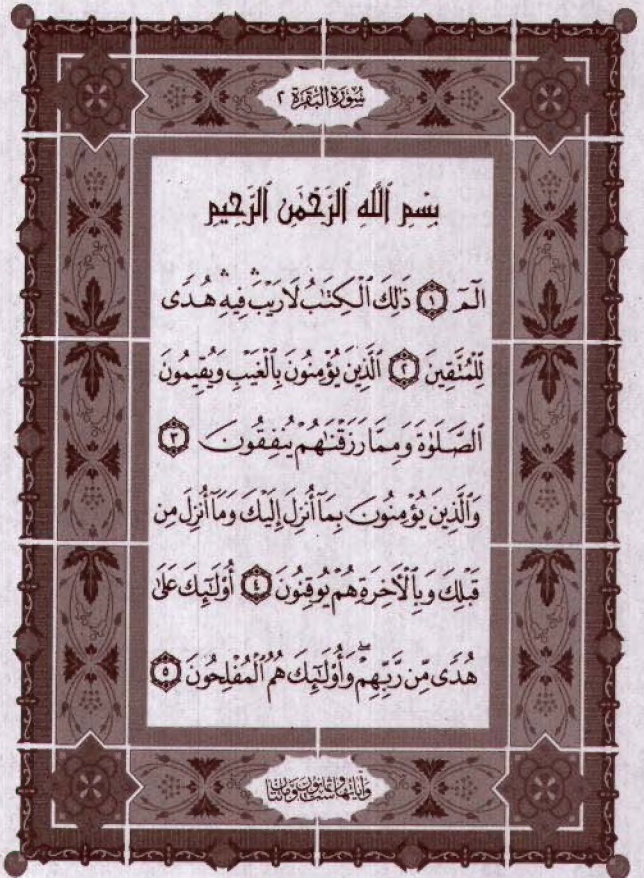 سُورَةُ البَقَرَة ٢
بِسْمِ ٱللَّهِ ٱلرَّحْمَٰنِ ٱلرَّحِيمِ
الٓمٓ ١ ذَٰلِكَ ٱلْكِتَٰبُ لَا رَيْبَ ۛ فِيهِ ۛ هُدًى
لِّلْمُتَّقِينَ ٢ ٱلَّذِينَ يُؤْمِنُونَ بِٱلْغَيْبِ وَيُقِيمُونَ
ٱلصَّلَوٰةَ وَمِمَّا رَزَقْنَٰهُمْ يُنفِقُونَ ٣
وَٱلَّذِينَ يُؤْمِنُونَ بِمَآ أُنزِلَ إِلَيْكَ وَمَآ أُنزِلَ مِن
قَبْلِكَ وَبِٱلْأَخِرَةِ هُمْ يُوقِنُونَ ٤ أُو۟لَٰٓئِكَ عَلَىٰ
هُدًى مِّن رَّبِّهِمْ ۖ وَأُو۟لَٰٓئِكَ هُمُ ٱلْمُفْلِحُونَ ٥
وَآيَاتُهَا سِتٌّ وَثَمَانُونَ وَمِائَتَانِ